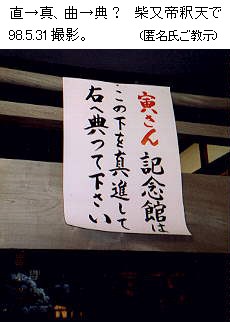 直→真、曲→典？　柴又帝釈天で
98.5.31撮影。　（匿名氏ご教示）
寅さん記念館は
この下を真進して
右へ典って下さい